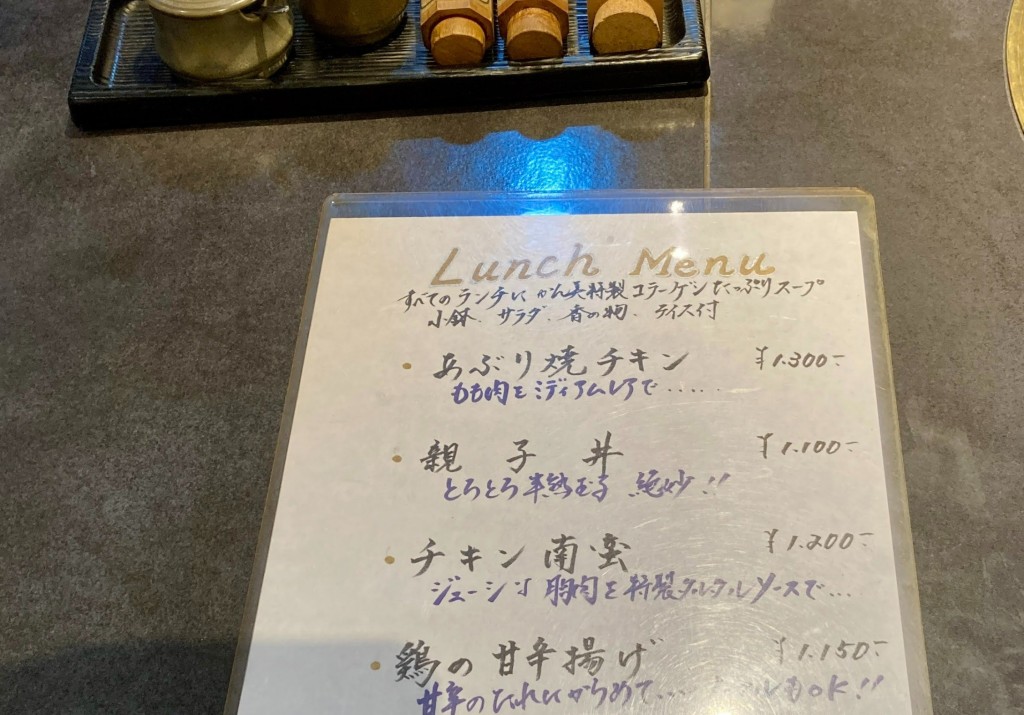 Lunch Menu
すべてのランチに かん美特製 コラーゲンたっぷりスープ
小鉢、サラダ、香の物、ライス付
・あぶり焼チキン ¥1.300-
もも肉をミディアムレアで.....
・親子丼 ¥1.100-
とろとろ半熟玉子 絶妙!!
・チキン南蛮 ¥1.200-
ジューシィ胸肉を特製タルタルソースで...
・鶏の甘辛揚げ ¥1.150-
甘辛のたれにからめて... もOK!!